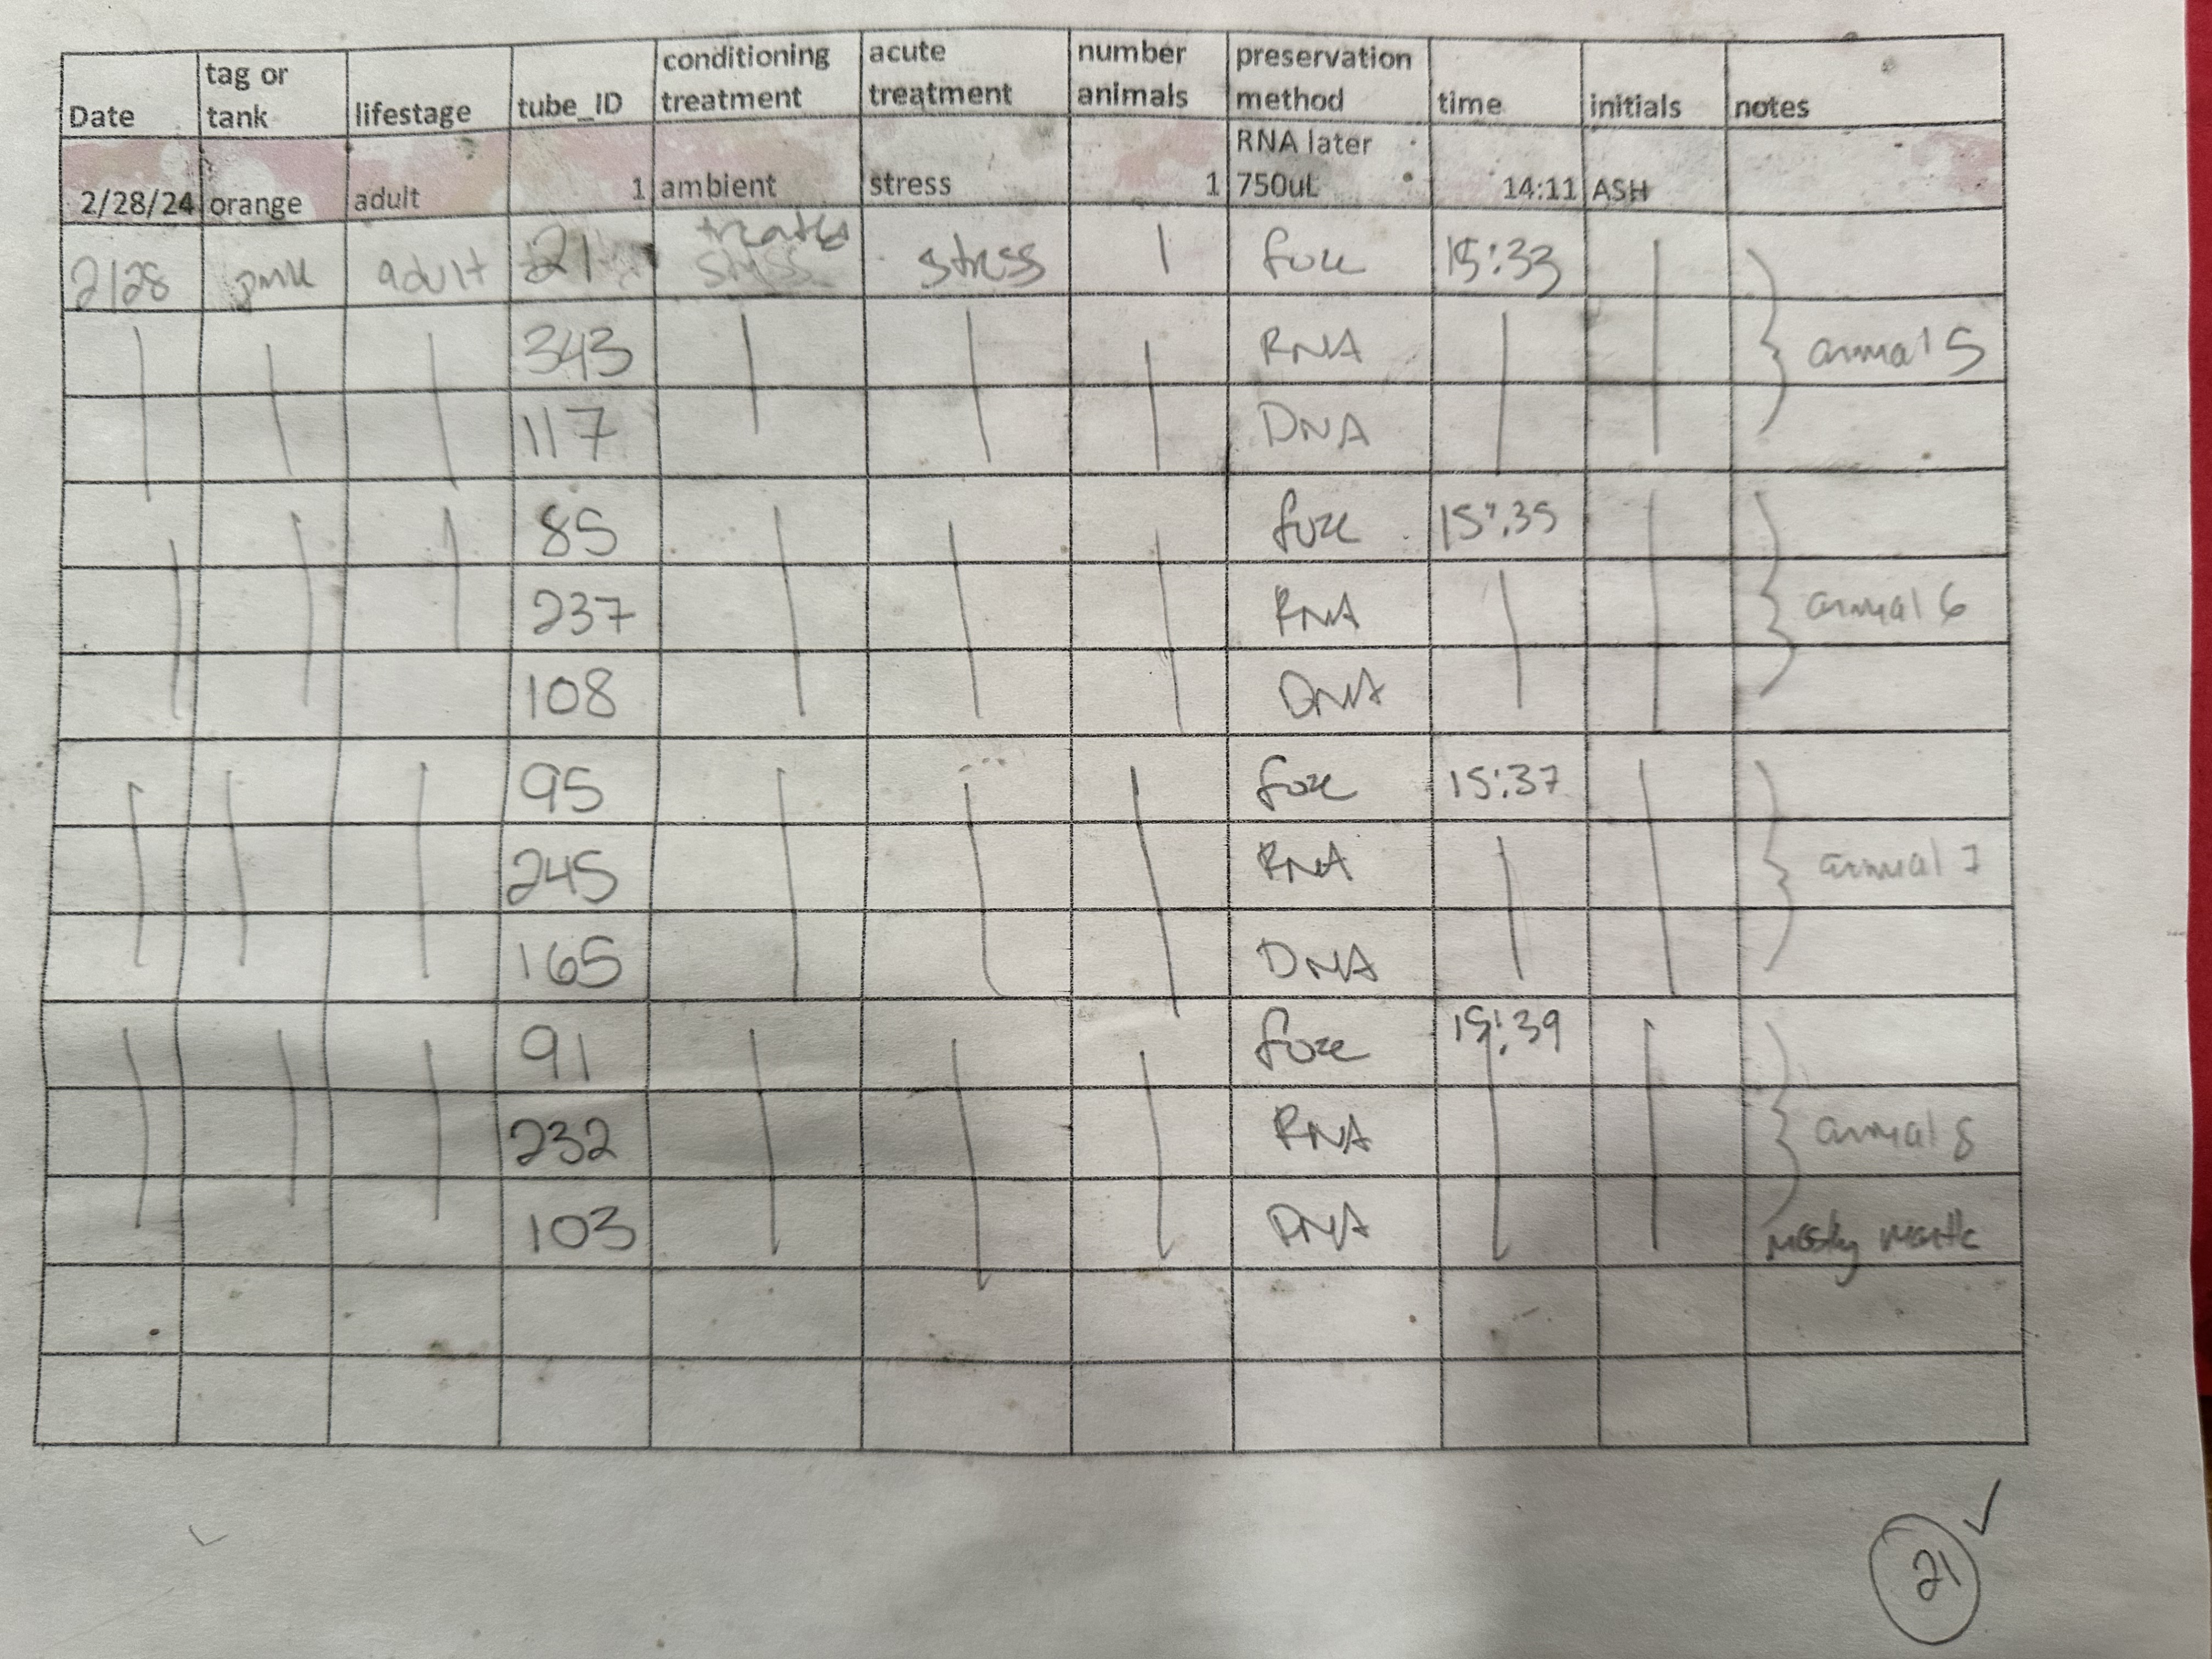 Date tag or tank lifestage tube_ID conditioning treatment acute treatment number animals preservation method time initials notes
2/28/24 orange adult 1 ambient stress 1 RNA later 750uL 14:11 ASH
2/28 pink adult 121 treated stress 1 froze 15:33
343 RNA animal 5
117 DNA
85 froze 15:35
237 RNA animal 6
108 DNA
95 froze 15:37
245 RNA animal 7
165 DNA
91 froze 15:39
232 RNA animal 8
103 DNA mostly mantle
21